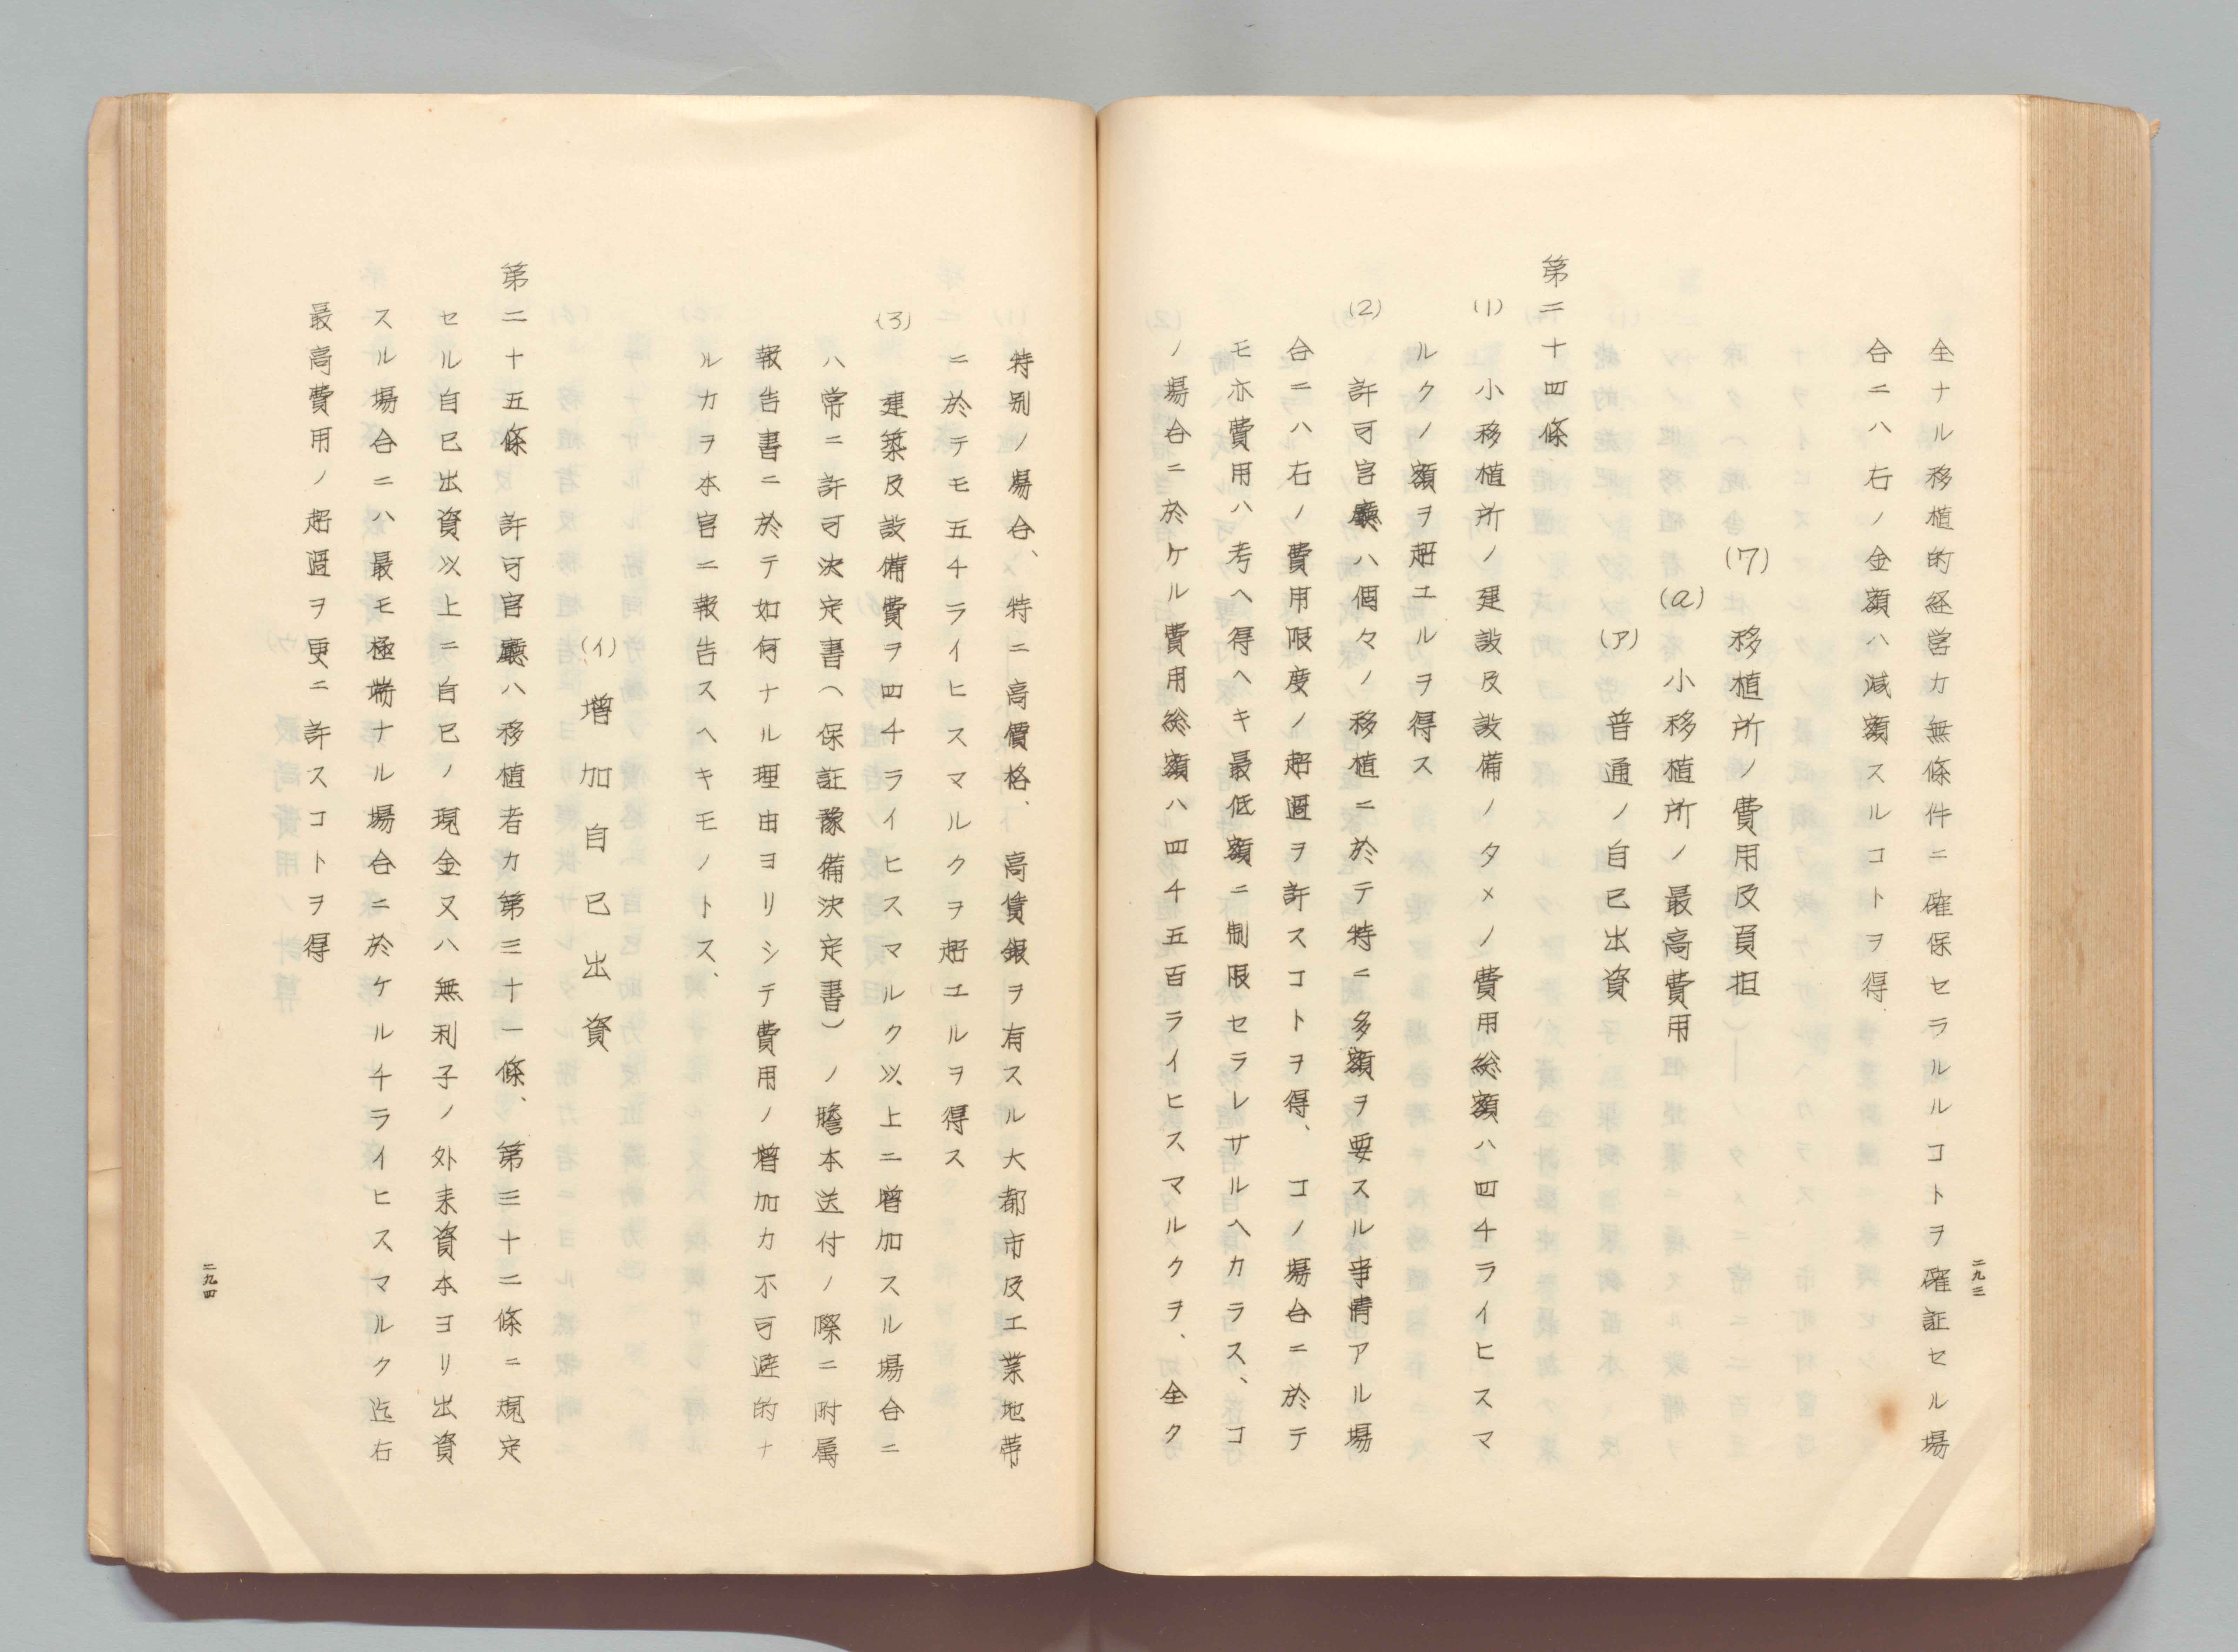 全ナル移植的経営カ無條件ニ確保セラルルコトヲ確証セル場
合ニハ右ノ金額ハ減額スルコトヲ得
(7) 移植所ノ費用及負担
(a) 小移植所ノ最高費用
(ア) 普通ノ自己出資
第二十四條
(1) 小移植所ノ建設及設備ノタメノ費用総額ハ四千ライヒスマ
ルクノ額ヲ超エルヲ得ス
(2) 許可官廳ハ個々ノ移植ニ於テ特ニ多額ヲ要スル事情アル場
合ニハ右ノ費用限度ノ超過ヲ許スコトヲ得、コノ場合ニ於テ
モ亦費用ハ考ヘ得ヘキ最低額ニ制限セラレサルヘカラス、コ
ノ場合ニ於ケル費用総額ハ四千五百ライヒスマルクヲ、全ク
二九三
特別ノ場合、特ニ高價格、高賃銀ヲ有スル大都市及工業地帯
ニ於テモ五千ライヒスマルクヲ超エルヲ得ス
(3) 建築及設備費ヲ四千ライヒスマルク以上ニ増加スル場合ニ
ハ常ニ許可決定書(保証豫備決定書)ノ謄本送付ノ際ニ附属
報告書ニ於テ如何ナル理由ヨリシテ費用ノ増加カ不可避的ナ
ルカヲ本官ニ報告スヘキモノトス、
(イ) 増加自己出資
第二十五條 許可官廳ハ移植者カ第三十一條、第三十二條ニ規定
セル自己出資以上ニ自己ノ現金又ハ無利子ノ外来資本ヨリ出資
スル場合ニハ最モ極端ナル場合ニ於ケル千ライヒスマルク迄右
最高費用ノ超過ヲ更ニ許スコトヲ得
二九四